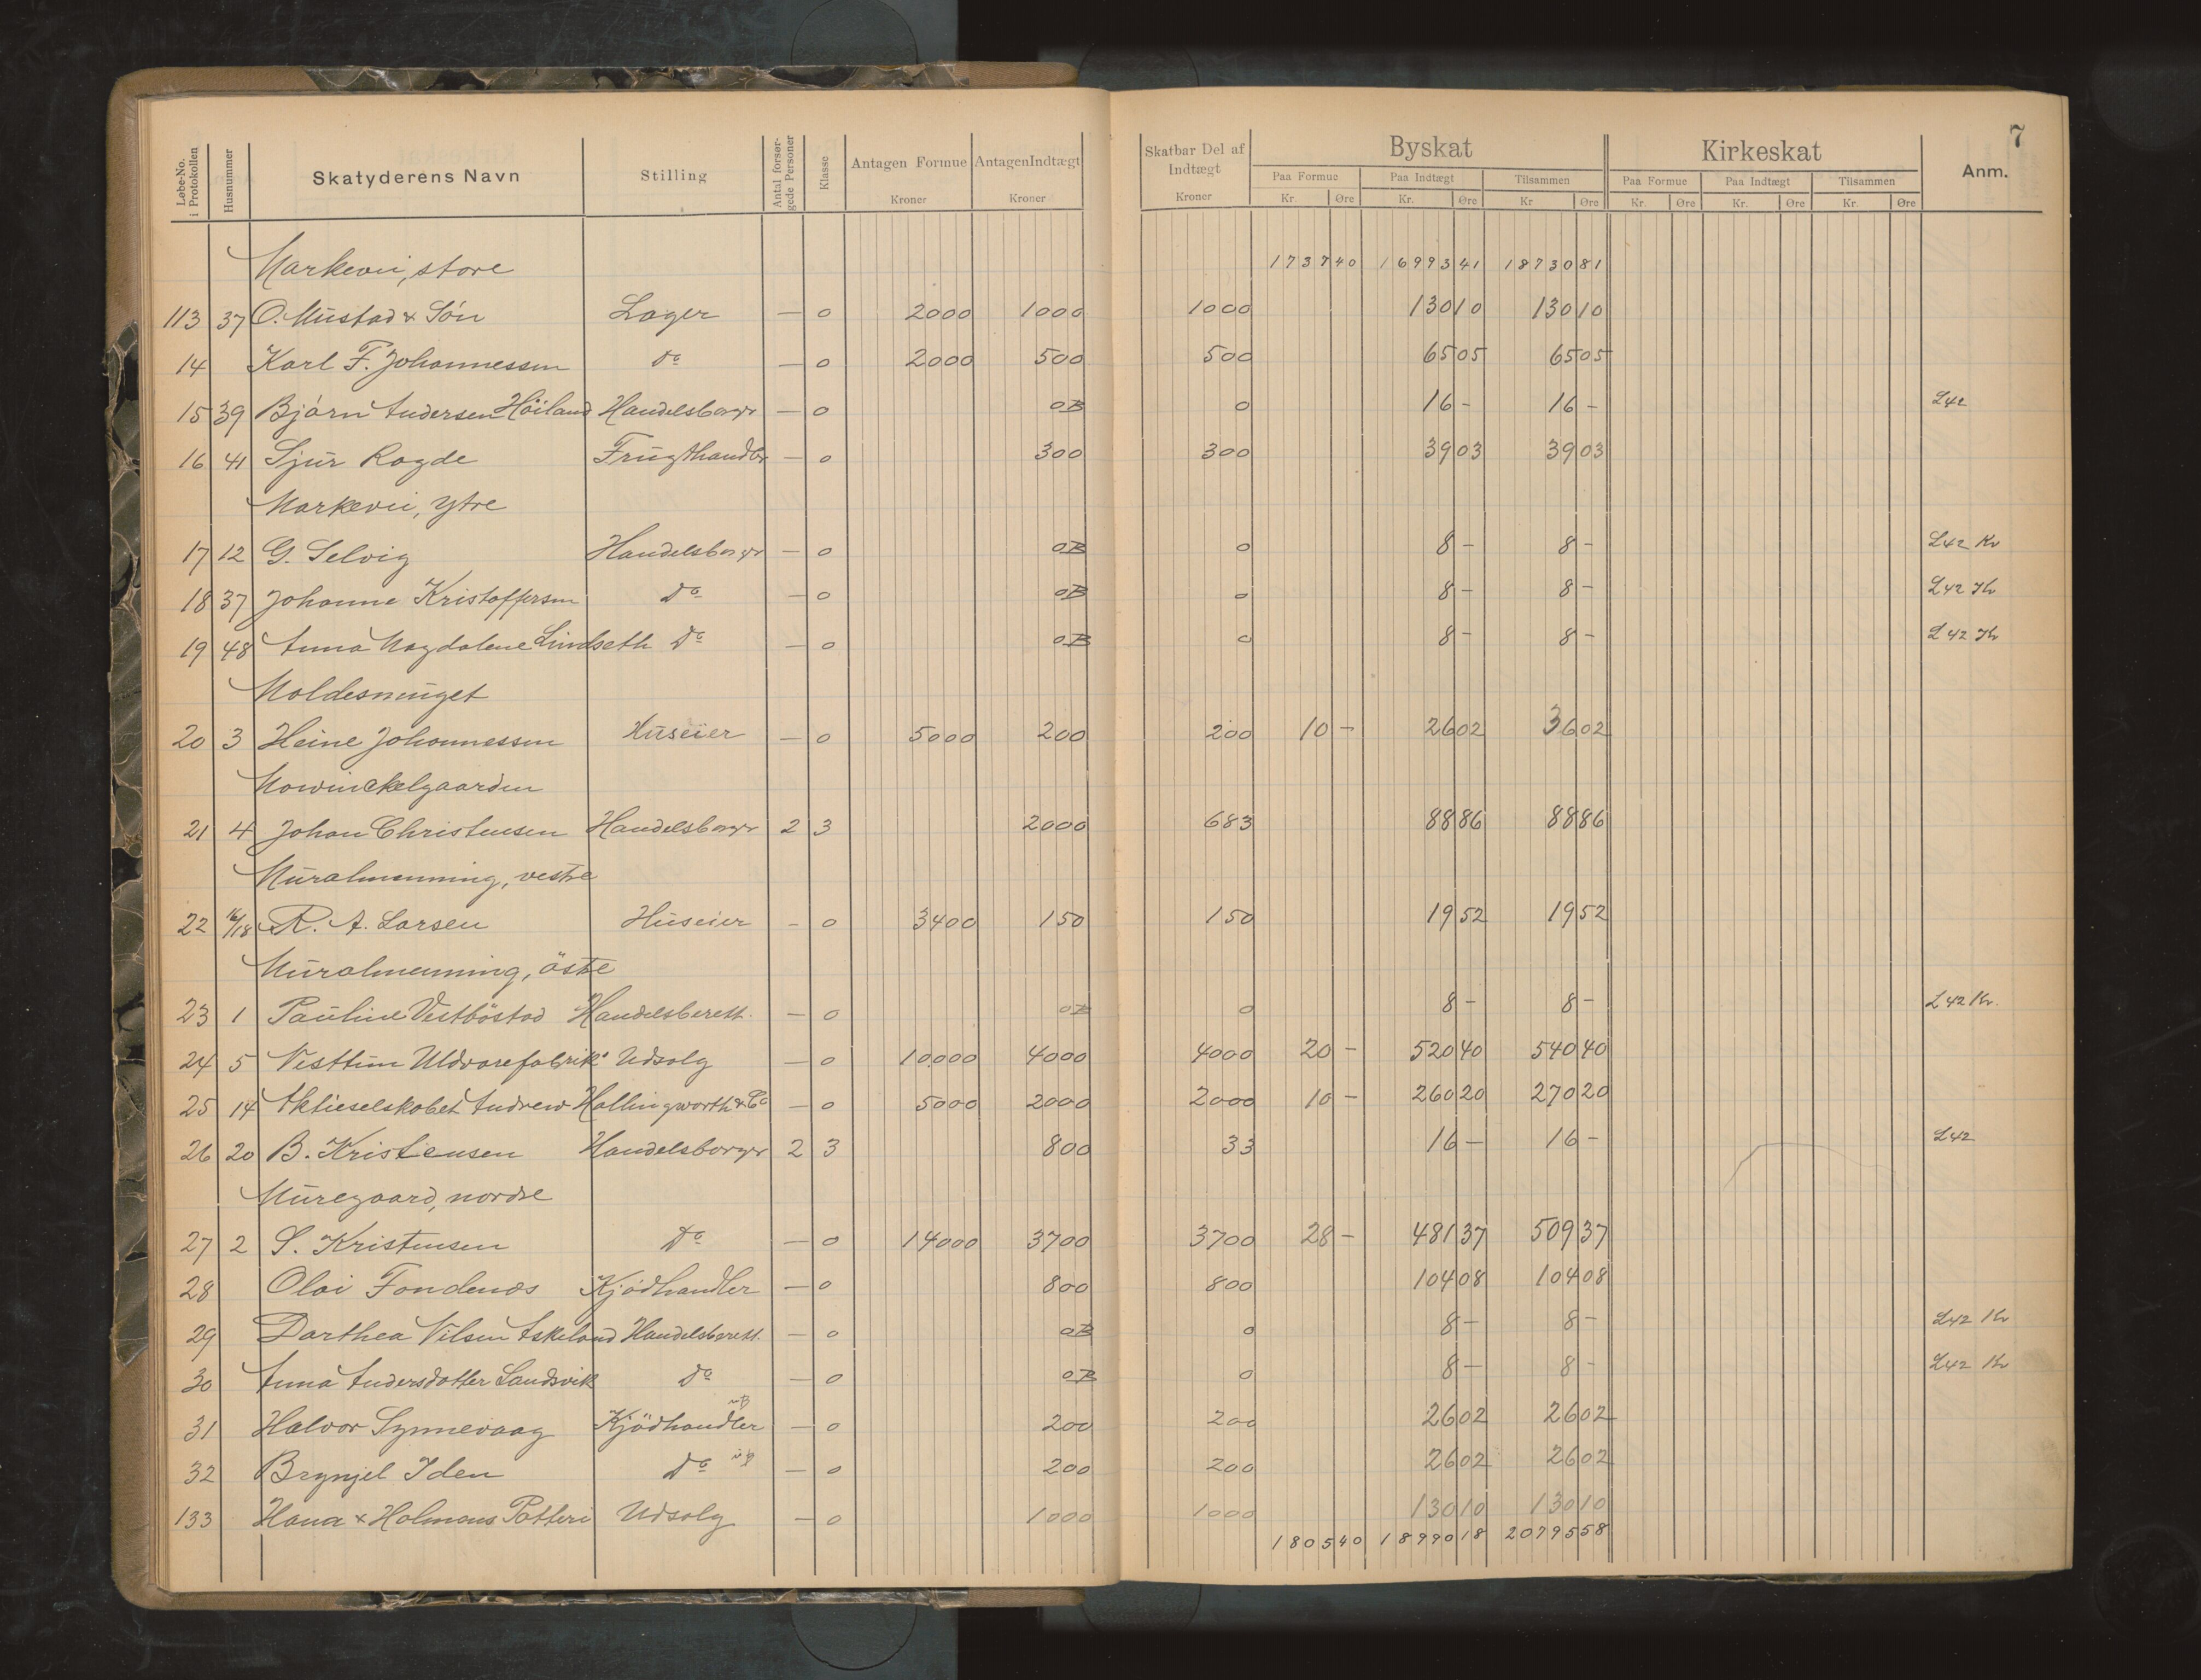 7
Løbe-No. i Protokollen Husnummer Skatyderens Navn Stilling Antal forsørgede Personer Klasse Antagen Formue Kroner Antagen Indtægt Kroner Skatbar Del af Indtægt Kroner Byskat Kirkeskat Anm.
Paa Formue Paa Indtægt Tilsammen Paa Formue Paa Indtægt Tilsammen
Kr. Øre Kr. Øre Kr Øre Kr. Øre Kr. Øre Kr. Øre
Markevei, store 1737 40 16993 41 18730 81
113 37 O. Mustad & Søn Lager — 0 2000 1000 1000 130 10 130 10
14 Karl F. Johannessen do — 0 2000 500 500 65 05 65 05
15 39 Bjørn Andersen Höiland Handelsborger — 0 0B 0 16 - 16 - L42
16 41 Sjur Ragde Frugthandler — 0 300 300 39 03 39 03
Markevei, ytre
17 12 G. Selvig Handelsborger — 0 0B 0 8 - 8 - L42 Kv
18 37 Johanne Kristoffersen do — 0 0B 0 8 - 8 - L42 Kv
19 48 Anna Magdalene Lindseth do — 0 0B 0 8 - 8 - L42 Kv
Moldesmuget
20 3 Heine Johannessen Huseier — 0 5000 200 200 10 — 26 02 36 02
Mowinckelgaarden
21 4 Johan Christensen Handelsborger 2 3 2000 683 88 86 88 86
Muralmenning, vestre
22 16/18 R. A. Larsen Huseier - 0 3400 150 150 19 52 19 52
Muralmenning, östre
23 1 Pauline Vestböstad Handelsberett. — 0 0B 0 8 - 8 - L42 Kv.
24 5 Visttun Uldvarefabrik Udsalg — 0 10000 4000 4000 20 — 520 40 540 40
25 14 Aktieselskabet Andrew Hollingworth & Co — 0 5000 2000 2000 10 — 260 20 270 20
26 20 B. Kristensen Handelsborger 2 3 800 33 16 — 16 - L42
Muregaard, nordre
27 2 S. Kristensen do — 0 14000 3700 3700 28 — 481 37 509 37
28 Olai Fondenes Kjödhandler — 0 800 800 104 08 104 08
29 Darthea Nilsen Askeland Handelsberett. — 0 0B 0 8 — 8 - L42 Kv
30 Anna Andersdotter Sandvik do — 0 0B 0 8 — 8 - L42 Kv
31 Halvor Synnevaag Kjödhandler — 0 200 200 26 02 26 02
32 Brynjel Iden do — 0 200 200 26 02 26 02
133 Hana & Holmens Potteri Udsalg — 0 1000 1000 130 10 130 10
1805 40 18990 18 20795 58